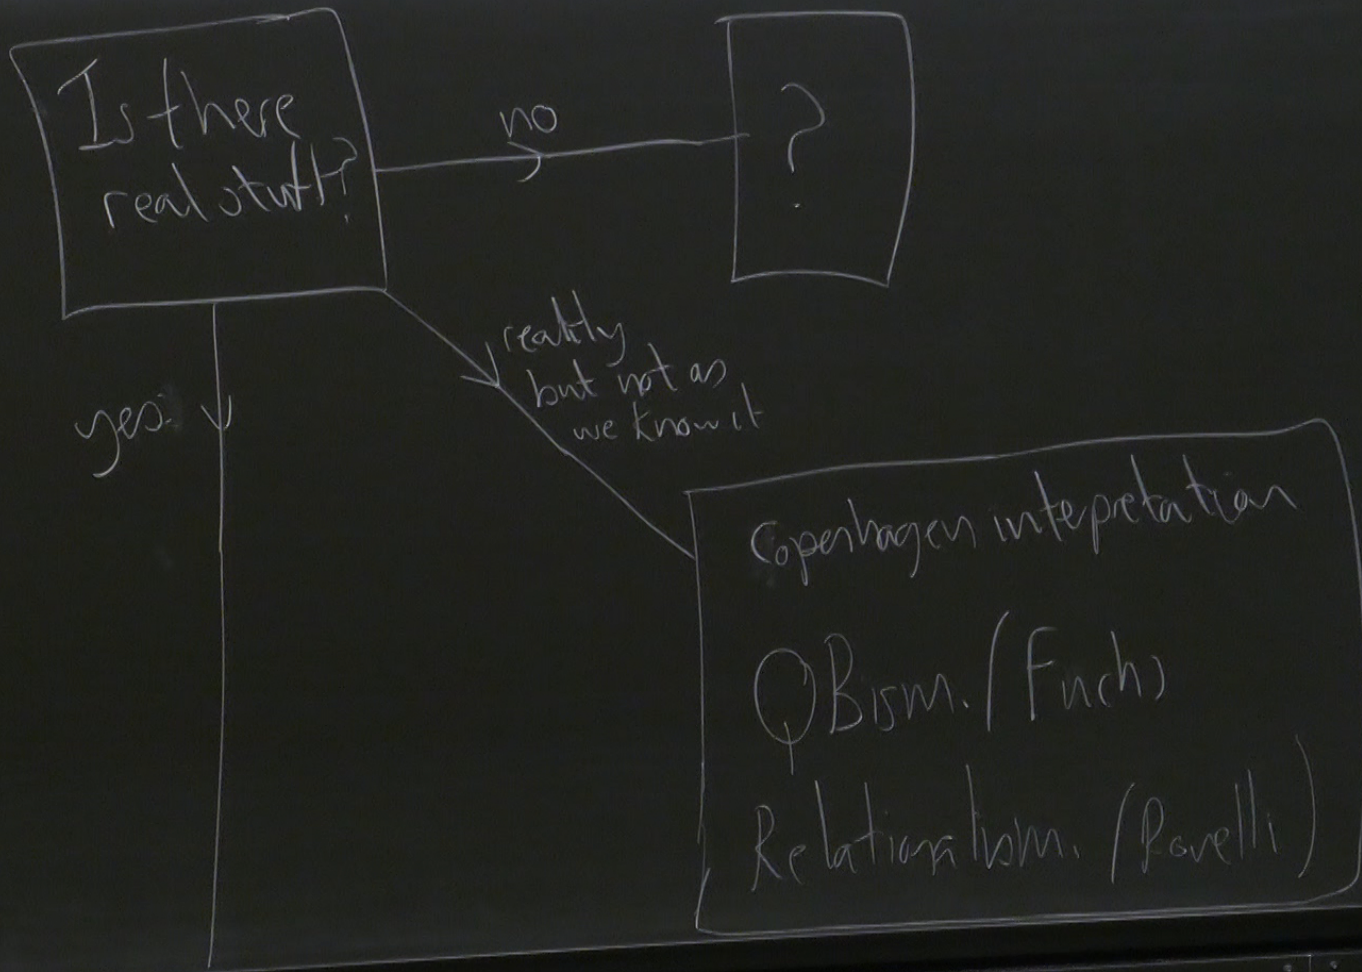 Is there
real stuff?
no
?
yes
reality
but not as
we know it
Copenhagen interpretation
QBism. (Fuchs)
Relationalism. (Rovelli)